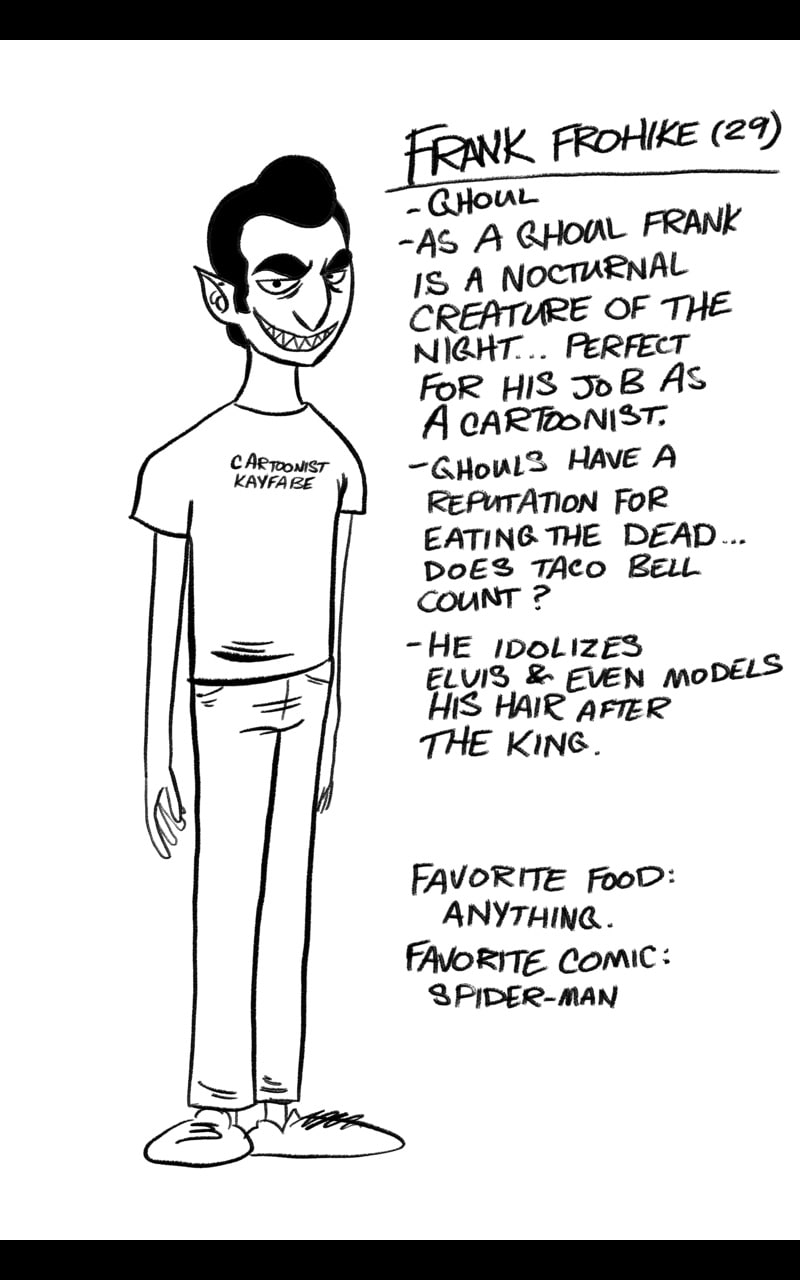 FRANK FROHIKE (29)
- GHOUL
- AS A GHOUL FRANK
IS A NOCTURNAL
CREATURE OF THE
NIGHT... PERFECT
FOR HIS JOB AS
A CARTOONIST.
- GHOULS HAVE A
REPUTATION FOR
EATING THE DEAD...
DOES TACO BELL
COUNT?
- HE IDOLIZES
ELVIS & EVEN MODELS
HIS HAIR AFTER
THE KING.
FAVORITE FOOD:
ANYTHING.
FAVORITE COMIC:
SPIDER-MAN
CARTOONIST
KAYFABE